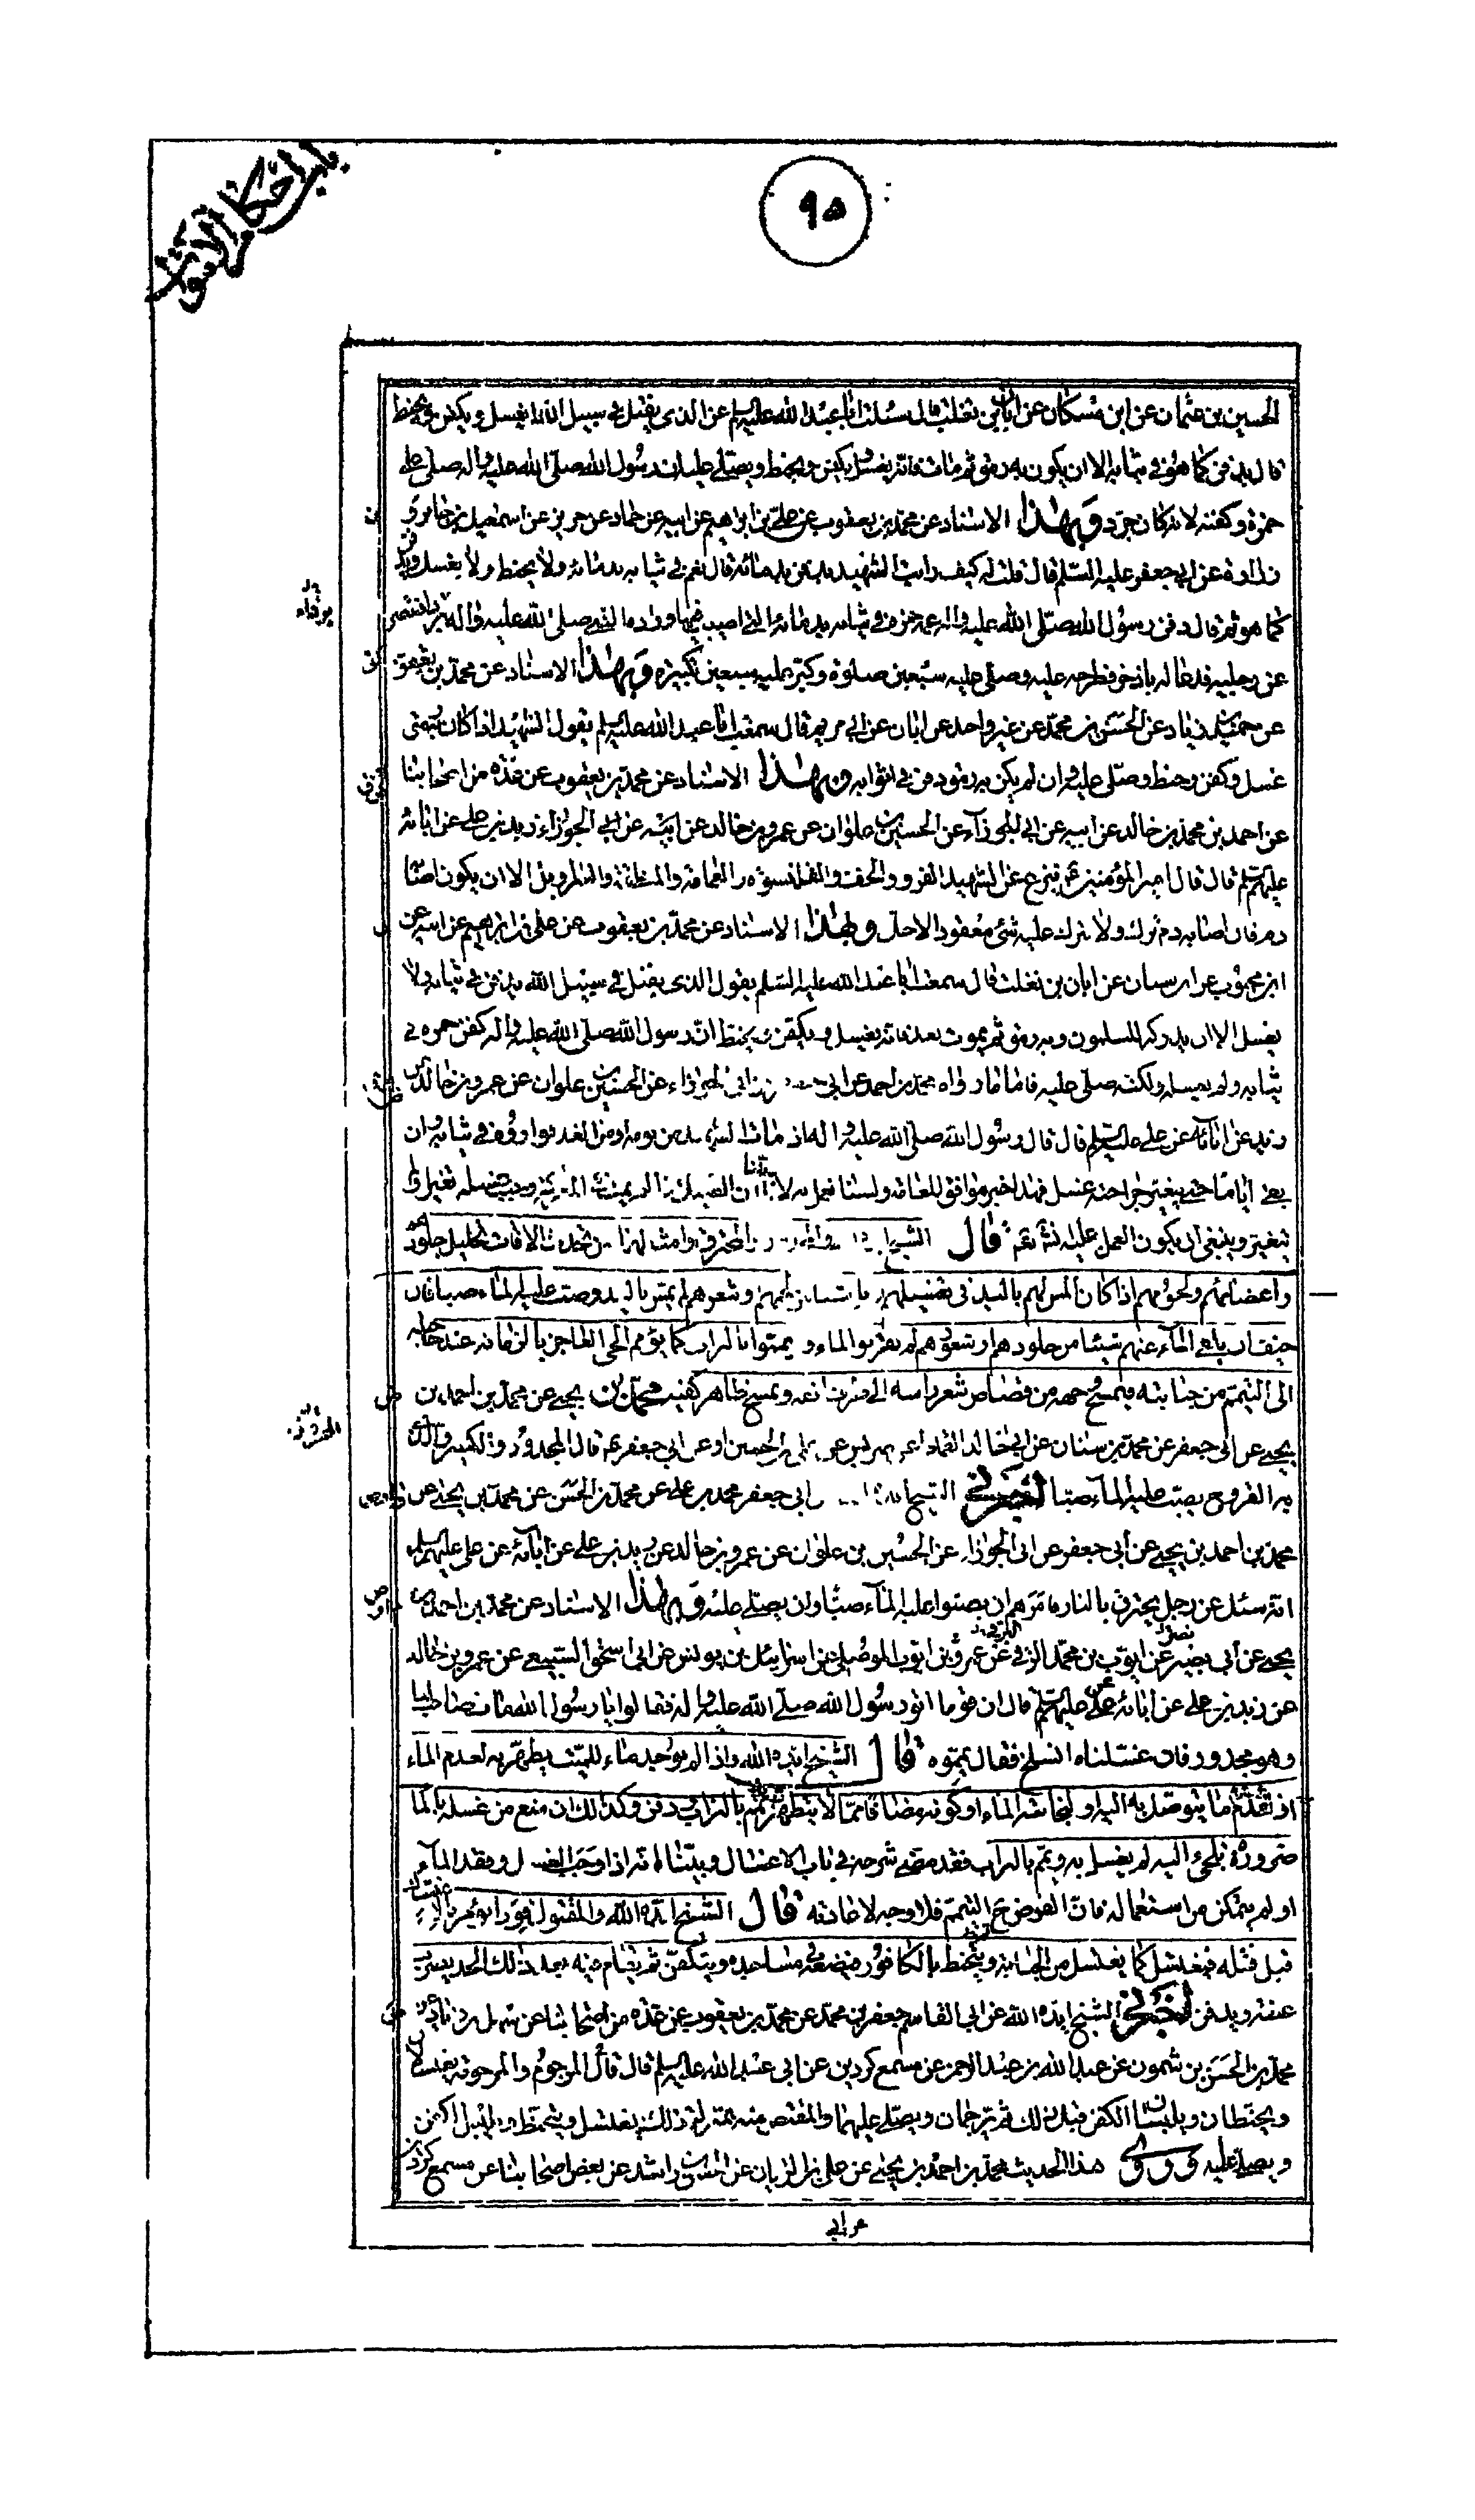 باب احكام الاموات
٩٥
الحسين بن عثمان عن ابن مسكان عن أبان بن تغلب قال سئلت ابا عبد الله عليه السلم عن الذى يقتل فى سبيل الله ايغسل ويكفن ويحنط
قال يدفن كما هو فى ثيابه الا ان يكون به رمق ثم مات فانه يغسل ويكفن ويحنط ويصلى عليه ان رسول الله صلى الله عليه واله صلى على
حمزة وكفنه لانه كان جرد وبهذا الاسناد عن محمد بن يعقوب عن على بن ابراهيم عن ابيه عن حماد عن حريز عن اسمعيل بن جابر و
زرارة عن ابى جعفر عليه السلم قال قلت له كيف رايت الشهيد يدفن بدمائه قال نعم فى ثيابه بدمائه ولا يحنط ولا يغسل ويدفن
كما هو ثم قال دفن رسول الله صلى الله عليه واله عمه حمزة فى ثيابه بدمائه التى اصيب فيها وردا النبى صلى الله عليه واله برداء فقصر
عن رجليه فدعا له باذخر فطرحه عليه وصلى عليه سبعين صلوة وكبر عليه سبعين تكبيرة وبهذا الاسناد عن محمد بن يعقوب
عن حميد بن زياد عن الحسن بن محمد عن غير واحد عن ابان عن ابى مريم قال سمعت ابا عبد الله عليه السلم يقول الشهيد اذا كان به رمق
غسل وكفن وحنط وصلى عليه وان لم يكن به رمق دفن فى اثوابه وبهذا الاسناد عن محمد بن يعقوب عن عدة من اصحابنا
عن احمد بن محمد بن خالد عن ابيه عن ابى الجوزاء عن الحسين بن علوان عن عمرو بن خالد عن زيد بن على عن ابائه
عليهم السلم قال قال امير المؤمنين ع ينزع عن الشهيد الفرو والخف والقلنسوة والعمامة والمنطقة والسراويل الا ان يكون اصابه
دم فان اصابه دم ترك ولا يترك عليه شئ معقود الا حل وبهذا الاسناد عن محمد بن يعقوب عن على بن ابراهيم عن ابيه عن
ابن محبوب عن ابن سنان عن ابان بن تغلب قال سمعت ابا عبد الله عليه السلم يقول الذى يقتل فى سبيل الله يدفن فى ثيابه ولا
يغسل الا ان يدركه المسلمون وبه رمق ثم يموت بعد فانه يغسل ويكفن ويحنط ان رسول الله صلى الله عليه واله كفن حمزة فى
ثيابه ولم يغسله ولكنه صلى عليه فاما ما رواه محمد بن احمد عن ابى الجوزاء عن الحسين بن علوان عن عمرو بن خالد عن
زيد عن ابائه عن على عليه السلم قال قال رسول الله صلى الله عليه واله اذا مات الشهيد من يومه او من الغد فواروه فى ثيابه وان
بقى اياما حتى يتغير جراحته غسل فهذا خبر موافق للعامة ولسنا نعمل به لانا
يتغير وينبغى ان يكون العمل عليه نشا تعم قال الشيخ والمحترق
واعضائهم ولحومهم اذا كان المس لهم باليد فى تغسيلهم وشعرهم لم يمس باليد وصب عليهم الماء صبا فان
خيف ان يلقى الماء عنهم شيئا من جلودهم او شعورهم لم يقربوا الماء ويمموا بالتراب كما يؤمم الحى العاجز بالزمانة عند حاجته
الى التيمم من جنابته فيمسح وجهه من قصاص شعر راسه الى طرف انفه ويمسح ظاهر كفيه محمد بن يحيى عن محمد بن احمد بن
يحيى عن ابى جعفر عن محمد بن سنان عن ابى خالد القماط عن ضريس عن على بن الحسين او عن ابى جعفر ع قال المجدور والكسير والذى
به القروح يصب عليه الماء صبا اخبرنى الشيخ عن ابى جعفر محمد بن على عن محمد بن الحسن عن محمد بن يحيى عن
محمد بن احمد بن يحيى عن ابى جعفر عن ابى الجوزاء عن الحسين بن علوان عن عمرو بن خالد عن زيد بن على عن ابائه عن على عليهم السلم
انه سئل عن رجل يحترق بالنار فامرهم ان يصبوا عليه الماء صبا وان يصلى عليه وبهذا الاسناد عن محمد بن احمد بن
يحيى عن ابى بصير عن ايوب بن محمد الرقى عن عمرو بن ايوب الموصلى عن اسرائيل بن يونس عن ابى اسحق السبيعى عن عمرو بن خالد
عن زيد بن على عن ابائه عن على عليهم السلم قال ان قوما اتوا رسول الله صلى الله عليه واله فقالوا يا رسول الله مات صاحب لنا
وهو مجدور فان غسلناه انسلخ فقال يمموه قال الشيخ ايده الله واذا لم يوجد ماء للميت يطهر به لعدم الماء
او تعذر ما يتوصل به اليه او لنجاسة الماء او كونه مضافا مما لا يتطهر به يمم بالتراب ودفن وكذلك ان منع من غسله بالماء
ضرورة تلجئ اليه لم يغسل به ويمم بالتراب فقد مضى شرحه فى باب الاغسال وبينا انه اذا وجب الغسل وفقد الماء
او لم يتمكن من استعماله فان الفرض ح التيمم فلا وجه لاعادته قال الشيخ ايده الله والمقتول قودا يؤمر بالاغتسال
قبل قتله فيغتسل كما يغتسل من الجنابة ويتحنط بالكافور فيضعه فى مساجده ويتكفن ثم يقام فيه بعد ذلك الحد بضرب
عنقه ويدفن اخبرنى الشيخ ايده الله عن ابى القاسم جعفر بن محمد عن محمد بن يعقوب عن عدة من اصحابنا عن سهل بن زياد عن
محمد بن الحسن بن شمون عن عبد الله بن عبد الرحمن عن مسمع كردين عن ابى عبد الله عليه السلم قال قال المرجوم والمرجومة يغسلان
ويحنطان ويلبسان الكفن قبل ذلك ثم يرجمان ويصلى عليهما والمقتص منه بمنزلة ذلك يغتسل ويتحنط ويلبس الكفن
ويصلى عليه وروى هذا الحديث محمد بن احمد بن يحيى عن على بن الريان عن الحسن بن راشد عن بعض اصحابنا عن مسمع كردين
عن ابى